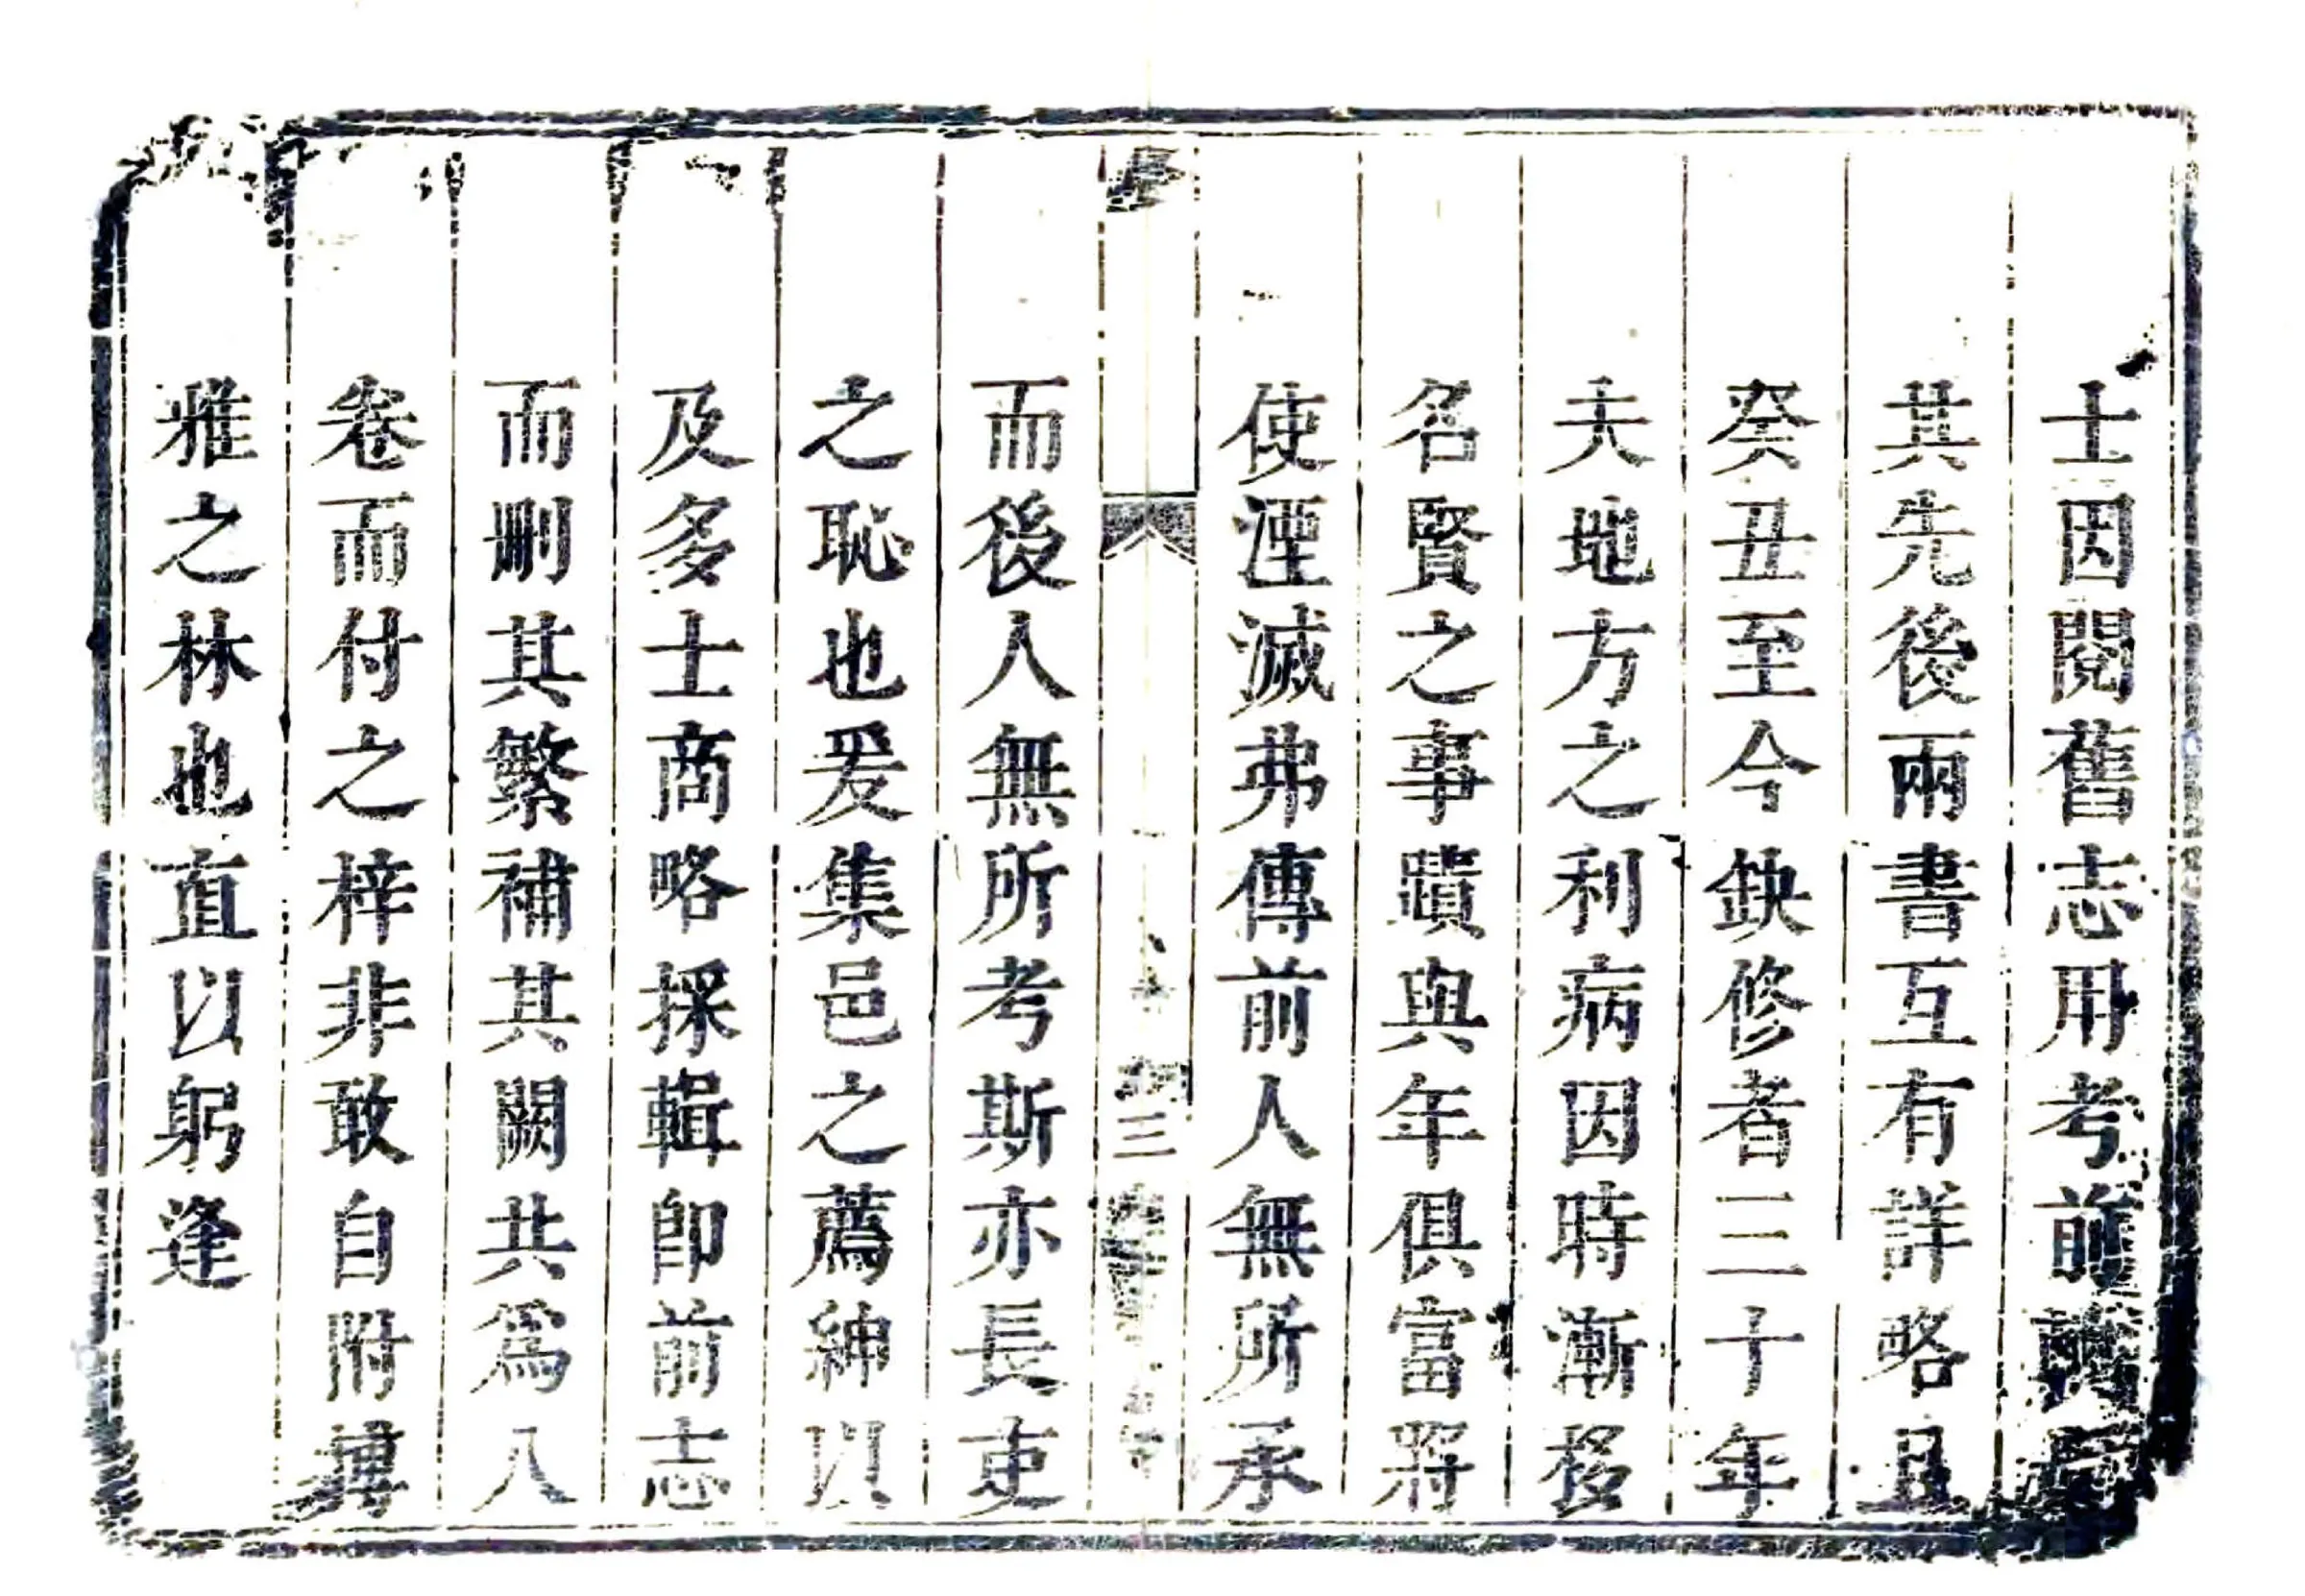 士因閱舊志用考前
其先後兩書互有詳略且
癸丑至今缺修者三十年
夫地方之利病因時漸移
名賢之事蹟與年俱富將
使湮滅弗傳前人無所承
三
而後人無所考斯亦長吏
之恥也爰集邑之薦紳以
及多士商略採輯卽前志
而刪其繁補其闕共爲八
卷而付之梓非敢自附博
雅之林也直以躬逢